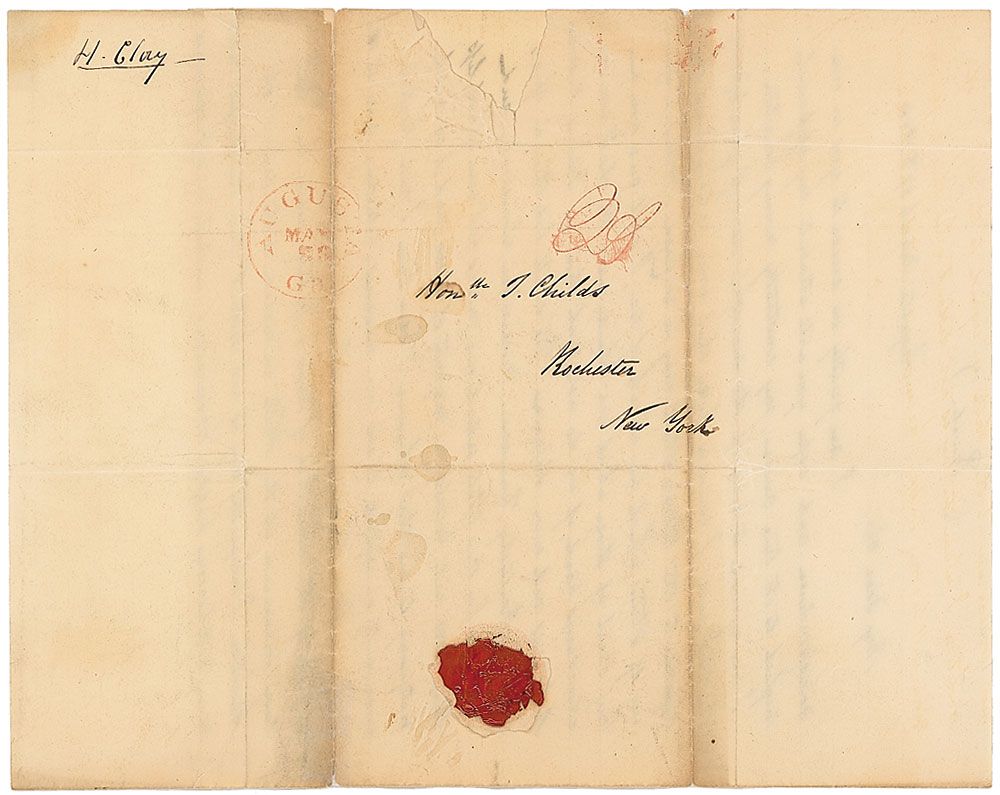 H. Clay
AUGUSTA
MAY
GA
Hon^ble T. Childs
Rochester
New York